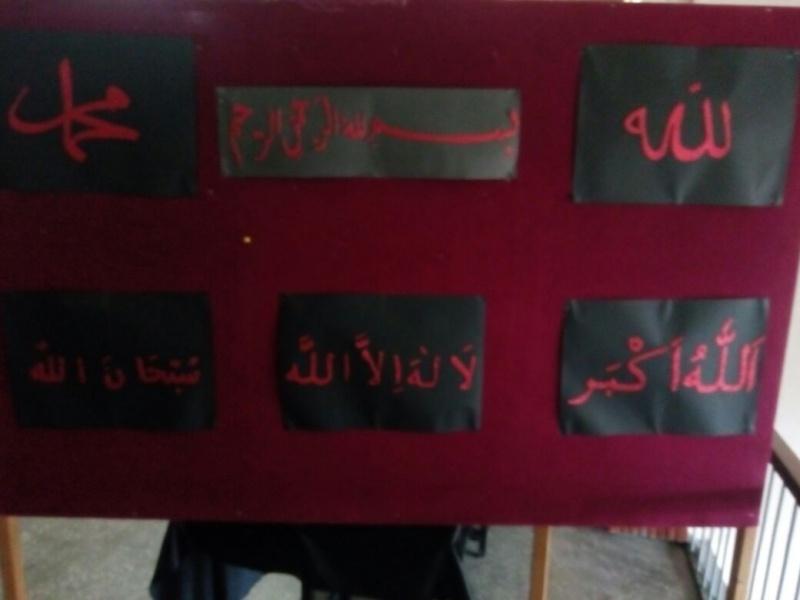 لله
بسم الله الرحمن الرحيم
محمد
اَللَّهُ اَكْبَر
لَا لَهَ اِلاَّ اللَّه
سُبْحَانَ الله